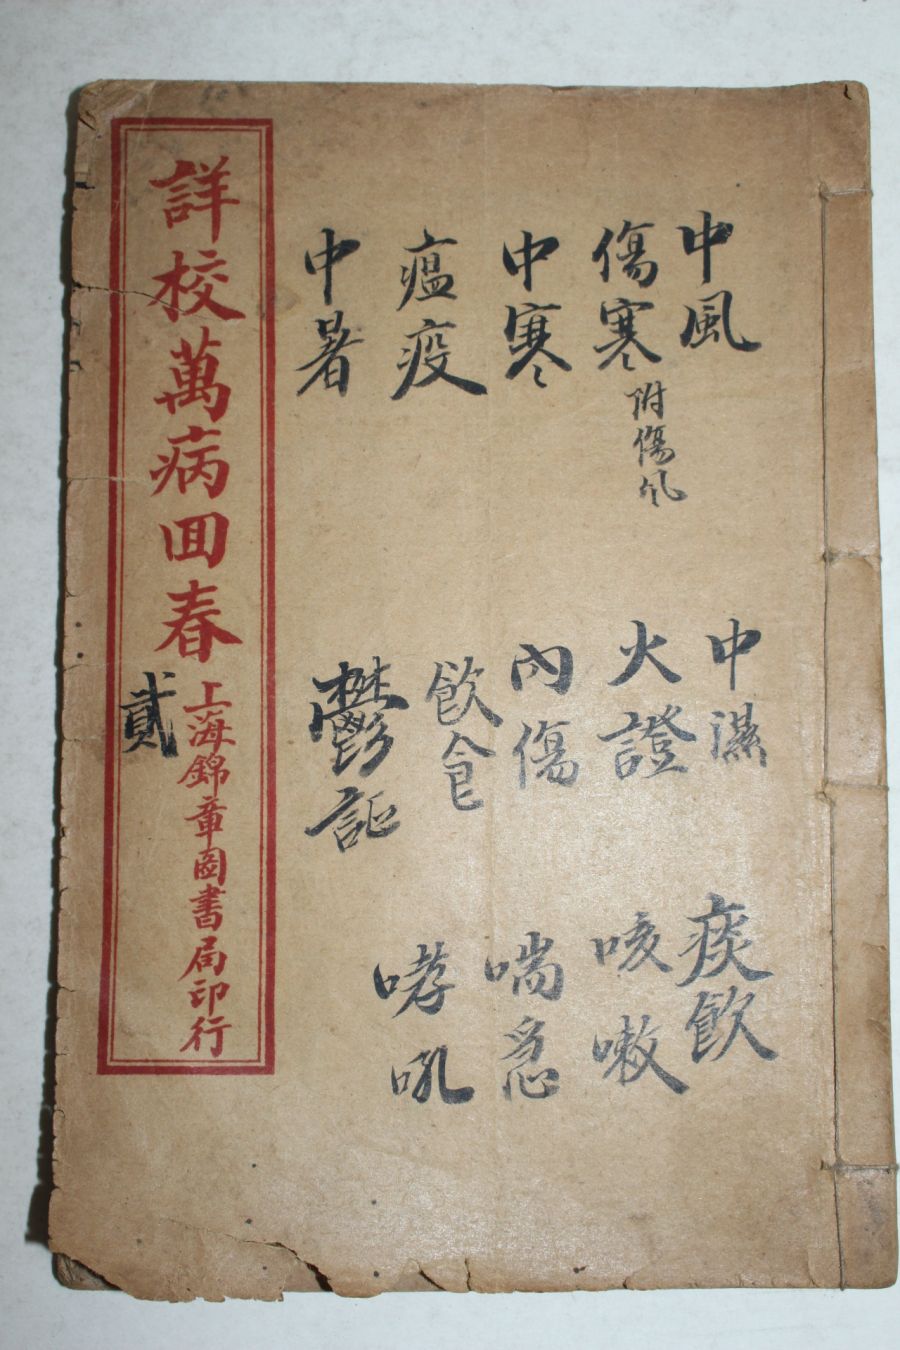 中風
傷寒
附傷风
中寒
瘟疫
中暑
中濕
火證
內傷
飲食
鬱証
痰飲
咳嗽
喘急
哮吼
詳校萬病回春
上海錦章圖書局印行
貳